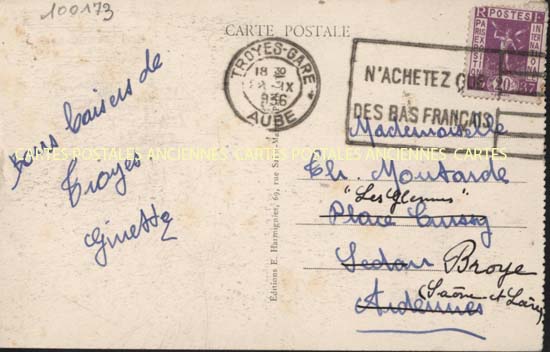 100173
CARTE POSTALE
TROYES-GARE
18
IX
936
AUBE
RF POSTES
PARIS
N'ACHETEZ QUE
DES BAS FRANÇAIS
Bons baisers de
Troyes
Ginette
CARTES POSTALES ANCIENNES CARTES POSTALES ANCIENNES CARTES POSTALES ANCIENNES
Editions E. Harmignies, 69, rue
Mademoiselle
Th. Moutarde
"Les Glennes"
Place
Sedan Broye
(Saône et Loire)
Ardennes